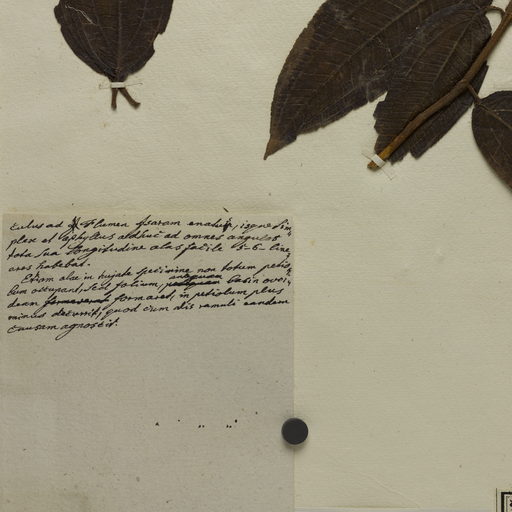 culus ad Flumen Ssaram enatus, isque sim-
plex et aphyllus adhuc ad omnes angulos
tota sua longitudine alas facile 5-6 line-
ares habebat.
Etiam alae in hujate specimine non totum petio-
lum occupant, sed folium, basin over,
deum formaret, in petiolum plus
minus decurrit; quod cum dis ramuli eandem
causam agnoscit.